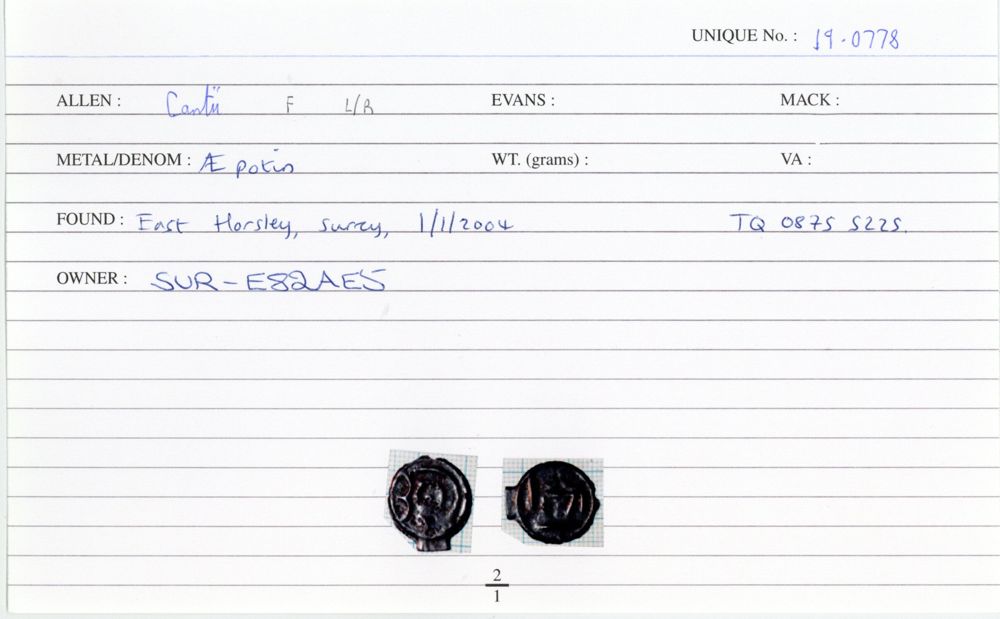 UNIQUE No. : 19-0778
ALLEN : Cantii F L/R EVANS : MACK :
METAL/DENOM : Æ potin WT. (grams) : VA :
FOUND : East Horsley, Surrey, 1/1/2004 TQ 0875 5225.
OWNER : SUR-E82AE5
2
1